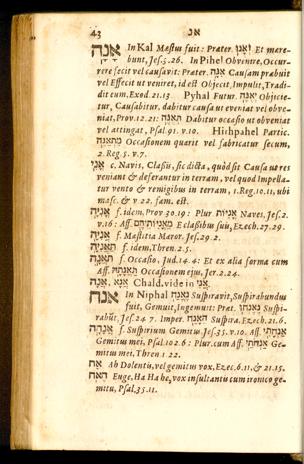 43 אנ
אנה In Kal Mæstus fuit: Præter. ואנו Et mære-
bunt, Jes. 3. 26. In Pihel Obvenire, Occur-
rere fecit vel causavit: Præter. אנה Causam præbuit
vel Effecit ut veniret, id est Objecit, Impulit, Tradi-
dit eum. Exod. 21. 13 Pyhal Futur. יאנה Objicie-
tur, Causabitur, dabitur causa ut eveniat vel obve-
niat, Prov. 12. 21: תאנה Dabitur occasio ut obveniat
vel attingat, Psal. 91. v. 10. Hithpahel Partic.
מתאנה Occasionem quærit vel fabricatur secum,
2. Reg. 5. v. 7.
אני c. Navis, Classis, sic dicta, quòd sit Causa ut res
veniant & deferantur in terram, vel quod Impella-
tur vento & remigibus in terram, 1. Reg. 10. 11, ubi
masc. & v 22. fam. est.
אניה f. idem, Prov 30. 19: Plur אניות Naves, Jes. 2.
v. 16: Aff. E classibus suis, Ezech. 27. 29.
אניה f. Mæstitia Mæror. Jes. 29. 2.
תאניה f. idem, Thren. 2. 5.
תאנה f. Occasio, Jud. 14. 4: Et ex alia forma cum
Aff. תאנתה Occasionem ejus, Jer. 2. 24.
אנא, אנה Chald. vide in אני
אנח In Niphal נאנח Suspiravit, Suspirabundus
fuit, Gemuit, Ingemuit: Præt. נאנחו Suspi-
rabūt, Jes. 24 7. Imper. האנח Suspira. Ezech. 21. 6.
אנחה f. Suspirium Gemitus Jes. 35. v. 10. Aff. אנחתי
Gemitus mei, Psal. 102. 6: Plur. cum Aff. אנחתי Ge-
mitus mei, Thren 1 22.
אח Ah Dolentis, vel gemitus vox, Ezec. 6. 11, & 21. 15.
האח Euge, Ha Ha he, vox insultantis cum ironico ge-
mitu, Psal. 35. 11.